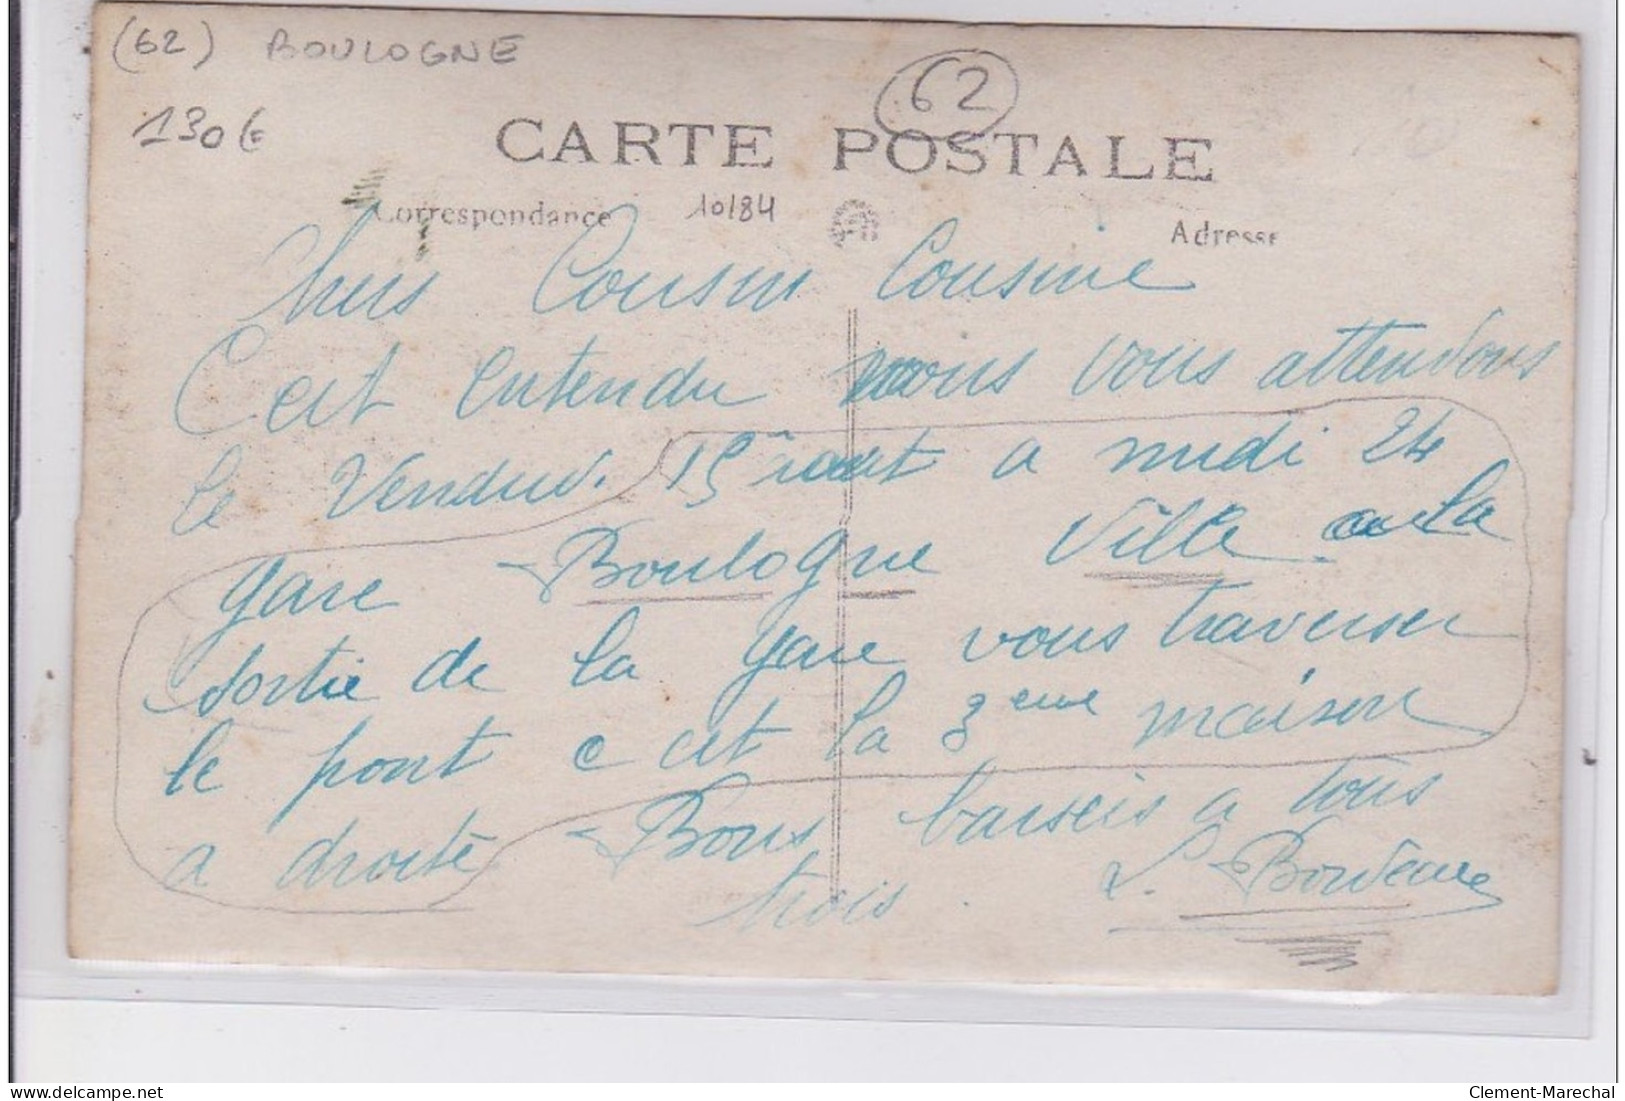 (62) BOULOGNE
62
130€
CARTE POSTALE
Correspondance 10/84
Adresse
Chers Cousin Cousine
C est entendu nous vous attendons
le Vendredi. 15 aout a midi 24
gare Boulogne Ville a la
sortie de la gare vous traverser
le pont c est la 3eme maison
a droite Bons baiseis a tous
trois. L. Bordeaux
delcampe.net
Clement-Marechal